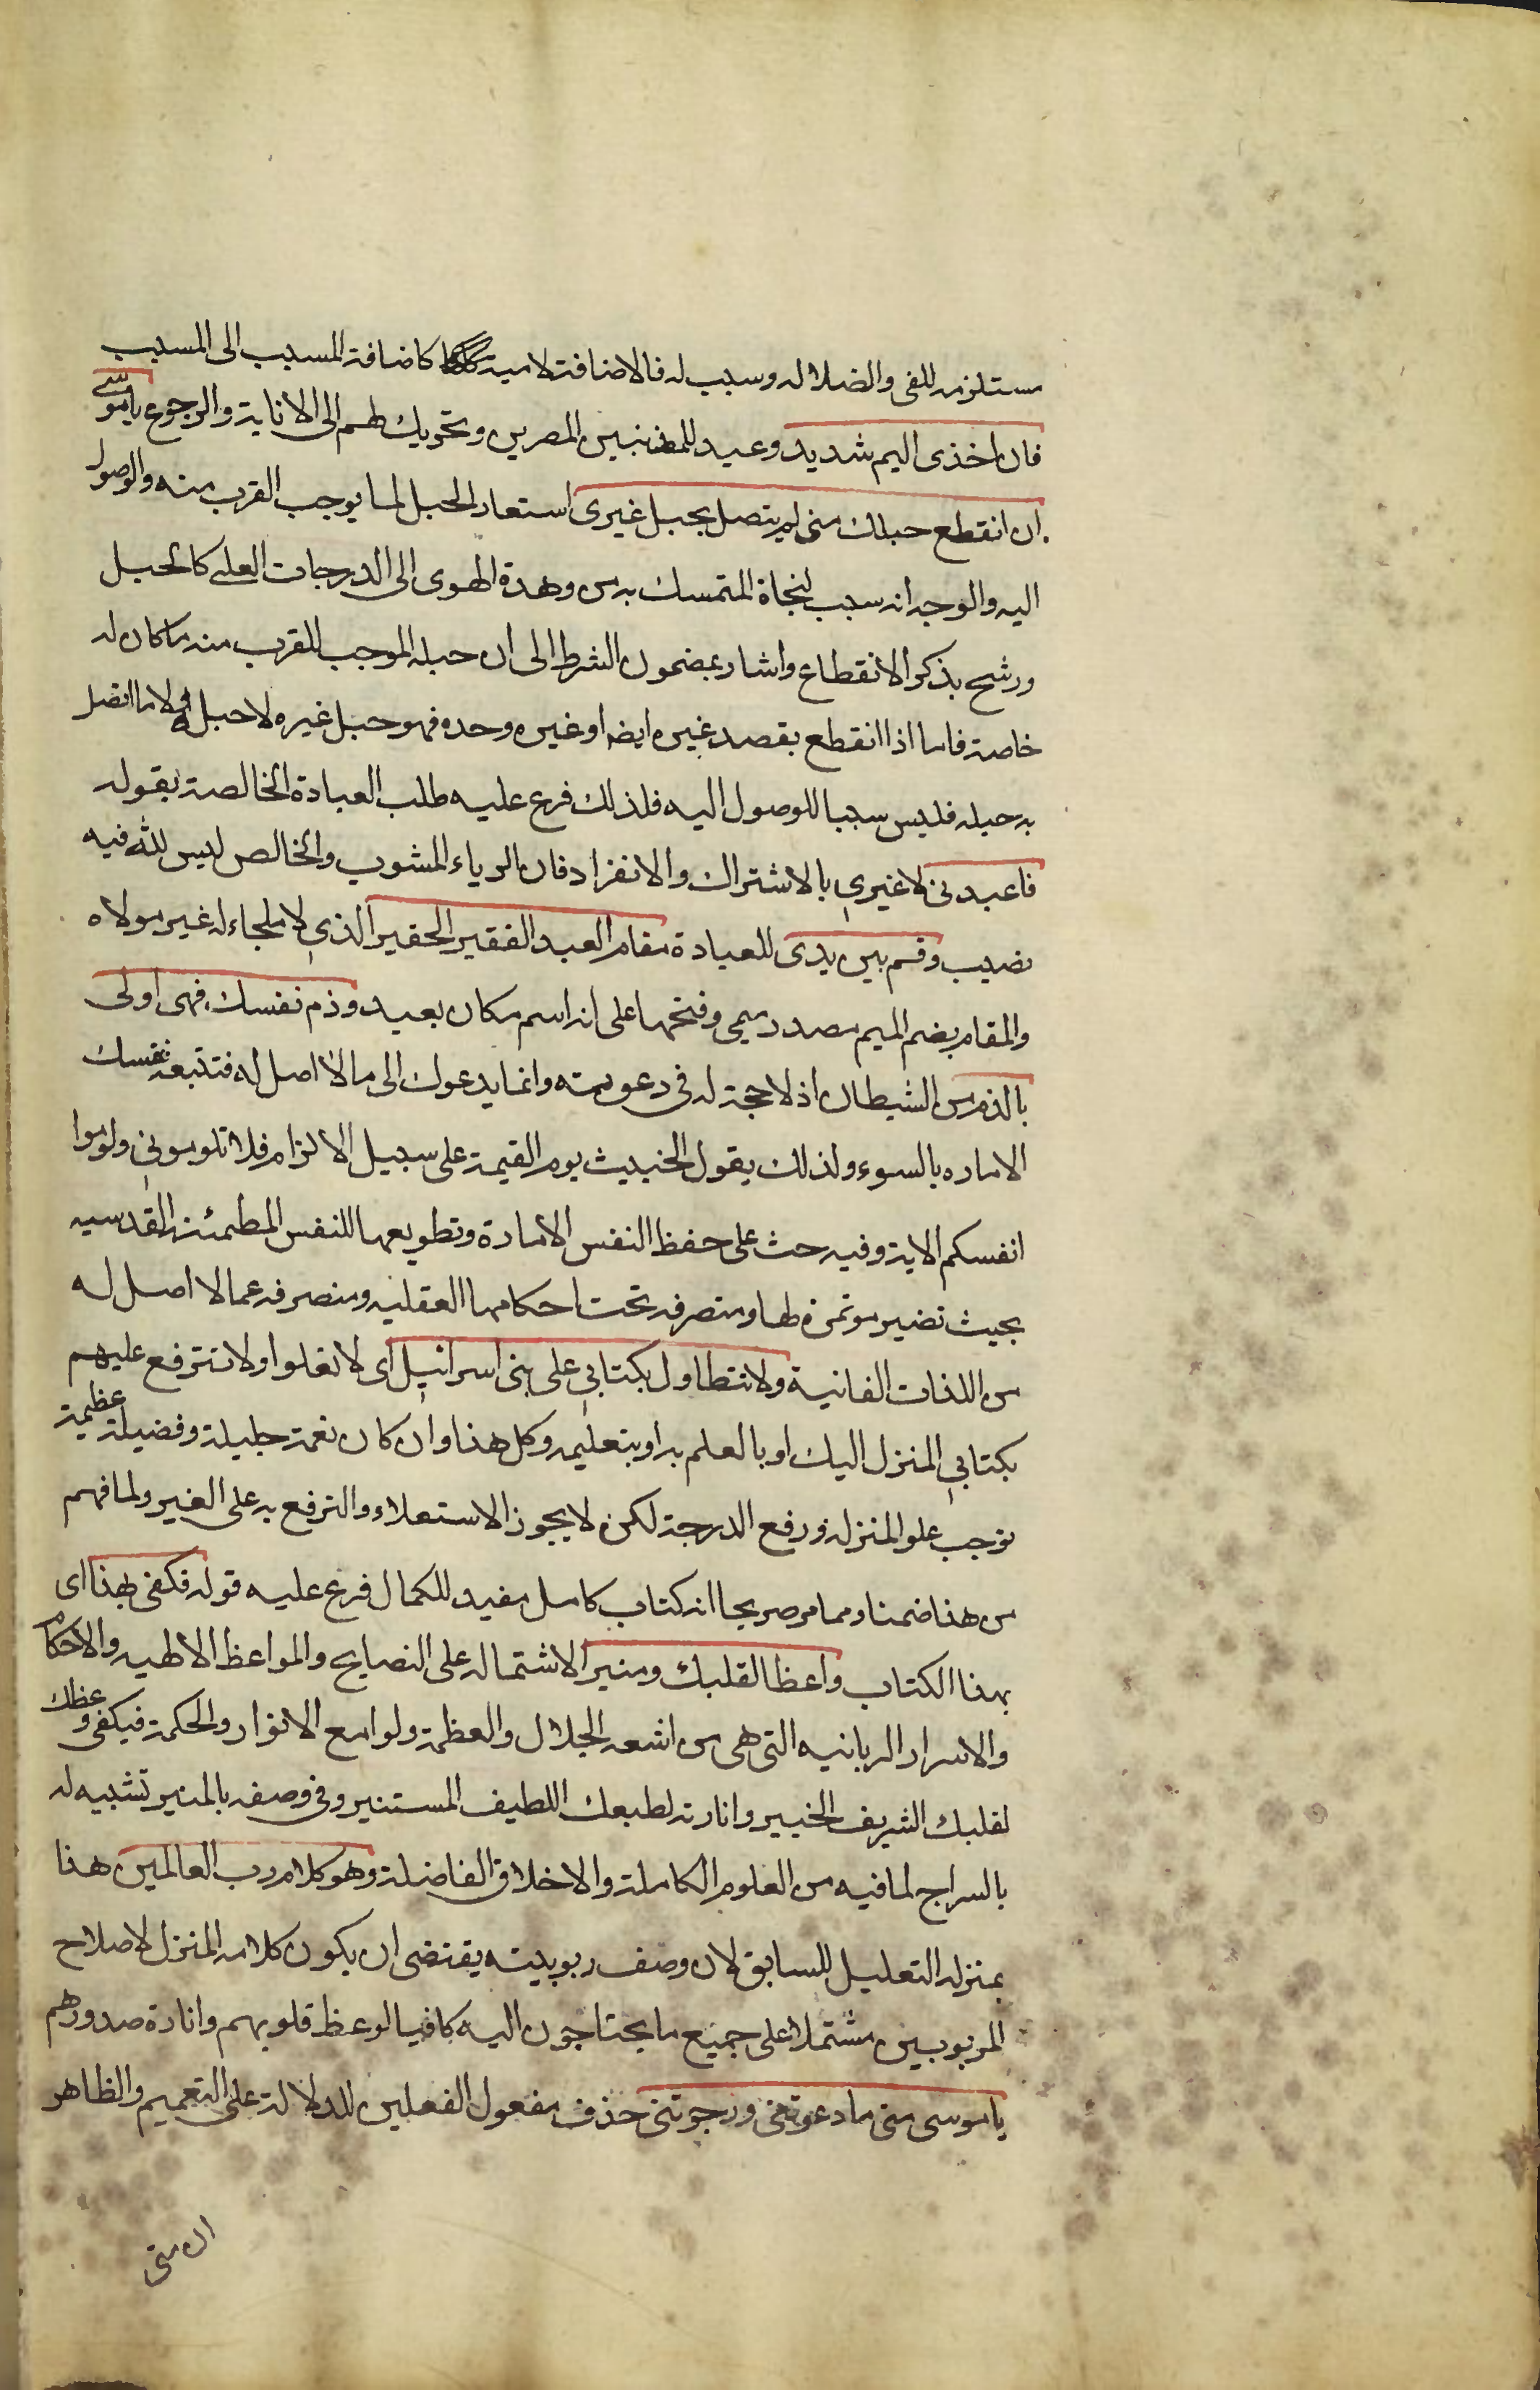 مستلزمه للغى والضلاله وسبب له فالاضافة لامية كاضافة المسبب الى المسبب
فان اخذى اليم شديد وعيد للمذنبين المصرين وتحريك لهم الى الانابة والرجوع ياموسى
ان انقطع حبلك منى لم يتصل بحبل غيرى استعار الحبل لما يوجب القرب منه والوصول
اليه والوجه انه سبب لنجاة المتمسك به من وهدة الهوى الى الدرجات العلى كالحبل
ورشح بذكر الانقطاع واشار بمضمون الشرط الى ان حبله الموجب للقرب منه ما كان له
خاصة فاما اذا انقطع بقصد غيره ايضا او غيره وحده فهو حبل غيره لا حبل له ولا ما اتصل
به حبله فليس سببا للوصول اليه فلذلك فرع عليه طلب العبادة الخالصة بقوله
فاعبدنى لا غيري بالاشتراك والانفراد فان الرياء المشوب والخالص ليس لله فيه
نصيب وقم بين يدى للعبادة مقام العبد الفقير الحقير الذي لا ملجاء له غير مولاه
والمقام بضم الميم مصدر ميمى وفتحها على انه اسم مكان بعيد وذم نفسك فهى اولى
بالذم من الشيطان اذ لا حجة له فى دعوته وانما يدعوك الى ما لا اصل له فتتبعه نفسك
الاماره بالسوء ولذلك يقول الخبيث يوم القيمة على سبيل الالزام فلا تلومونى ولوموا
انفسكم الاية وفيه حث على حفظ النفس الامارة وتطويعها للنفس المطمئنة القدسيه
بحيث تصير موتمرة لها ومتصرفه تحت احكامها العقليه ومنصرفه عما لا اصل له
من اللذات الفانية ولا تتطاول بكتابي على بنى اسرائيل اى لا تعلوا ولا تترفع عليهم
بكتابي المنزل اليك او بالعلم به او بتعليمه وكل هذا وان كان نعمة جليلة وفضيلة عظيمة
توجب علو المنزله ورفع الدرجة لكن لا يجوز الاستعلاء والترفع به على الغير ولما فهم
من هذا ضمنا ومما مر صريحا انه كتاب كامل مفيد للكمال فرع عليه قوله فكفى بهذا اى
بهذا الكتاب واعظا لقلبك ومنيرا لاشتماله على النصايح والمواعظ الالهيه والاحكام
والاسرار الربانيه التى هى من اشعه الجلال والعظمة ولوامع الانوار والحكمة فيكفى وعظك
لقلبك الشريف الخبير وانارته لطبعك اللطيف المستنير وفى وصفه بالمنير تشبيه له
بالسراج لما فيه من العلوم الكاملة والاخلاق الفاضلة وهو كلام رب العالمين هذا
بمنزلة التعليل للسابق لان وصف ربوبيته يقتضى ان يكون كلامه المنزل لاصلاح
المربوبين مشتملا على جميع ما يحتاجون اليه كافيا لوعظ قلوبهم وانارة صدورهم
ياموسى متى ما دعوتنى ورجوتنى حذف مفعول الفعلين للدلالة على التعميم والظاهر
ان متى